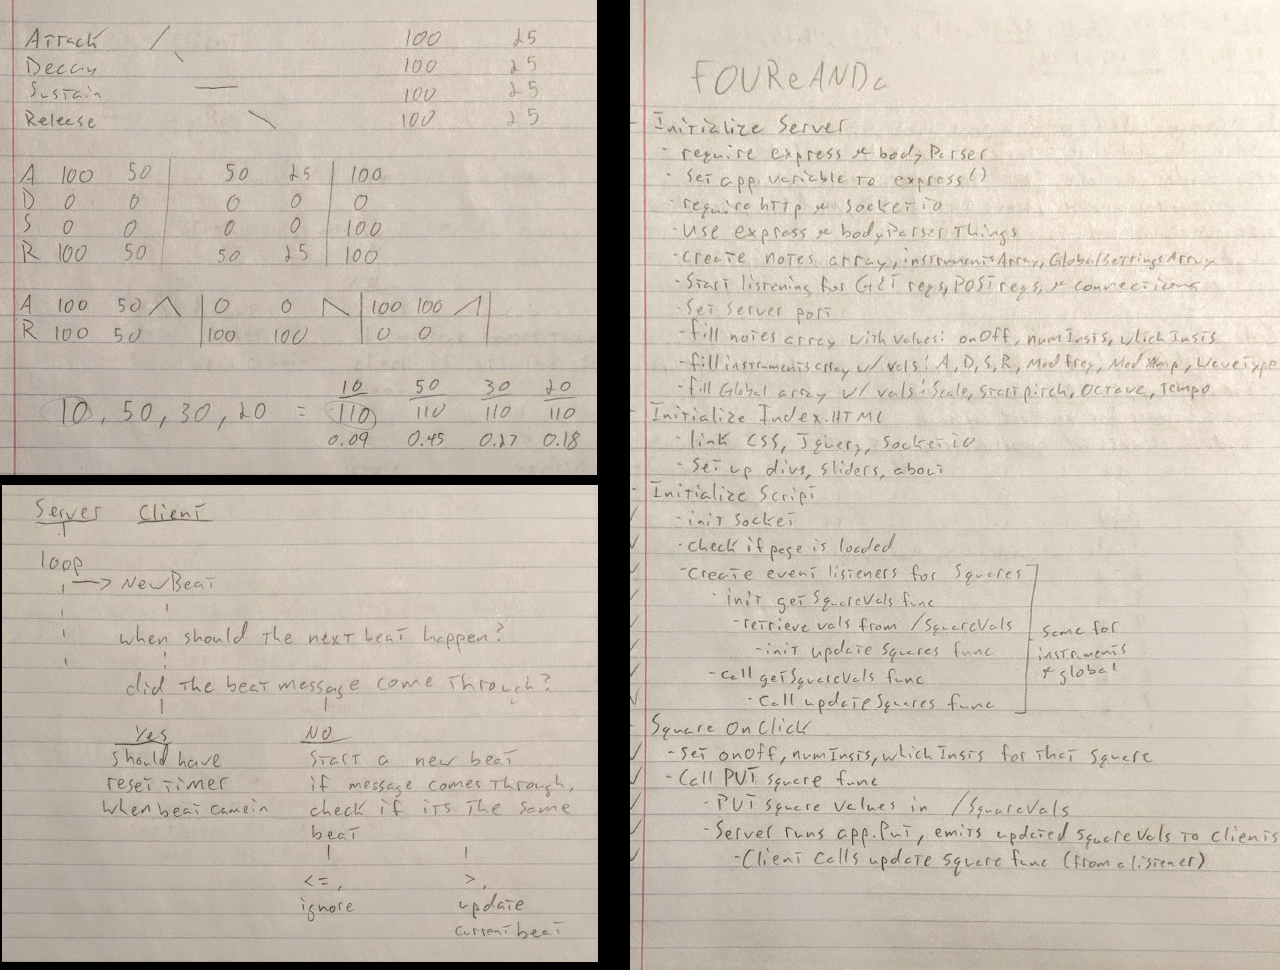 Attack / 100 25
Decay \ 100 25
Sustain — 100 25
Release \ 100 25
A 100 50 | 50 25 | 100
D 0 0 | 0 0 | 0
S 0 0 | 0 0 | 100
R 100 50 | 50 25 | 100
A 100 50 | 0 0 | 100 100 |
R 100 50 | 100 100 | 0 0 |
10 50 30 20
10, 50, 30, 20 = 110 110 110 110
0.09 0.45 0.27 0.18
Server Client
loop
-> New Beat
when should the next beat happen?
did the beat message come through?
Yes NO
should have start a new beat
reset timer if message comes through,
when beat came in check if its the same
beat
<=, >,
ignore update
current beat
FOUReANDa
- Initialize Server
- require express & bodyParser
- set app variable to express()
- require http & socketio
- use express & bodyParser things
- create notes array, instrumentsArray, GlobalSettingsArray
- Start listening for GET reqs, POST reqs, & connections
- Set Server port
- fill notes array with values: onOff, numInsts, which Insts
- fill instruments array w/ vals: A, D, S, R, Mod freq, Mod Amp, WaveType
- fill Global array w/ vals: Scale, Start pitch, Octave, Tempo
- Initialize Index.HTML
- link CSS, Jquery, Socketio
- Set up divs, sliders, about
- Initialize Script
- init socket
- check if page is loaded
- Create event listeners for Squares
- init getSquareVals func
- retrieve vals from /SquareVals
- init update Squares func
same for
instruments
+ global
- call getSquareVals func
- Call updateSquares func
Square On Click
- set onOff, numInsts, which Insts for that Square
- Call PUT square func
- PUT square values in /SquareVals
- Server runs app.Put, emits updated squareVals to clients
- Client calls update square func (from a listener)